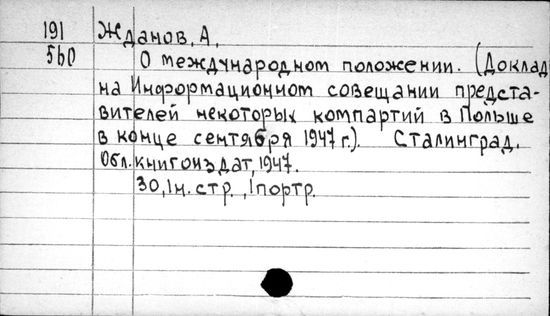 191 Жданов, А.
560 О международном положении. (Доклад
на Информационном совещании предста-
вителей некоторых компартий в Польше
в конце сентября 1947 г.). Сталинград.
Обл. книгоиздат, 1947.
30, 1 н. стр., 1 портр.